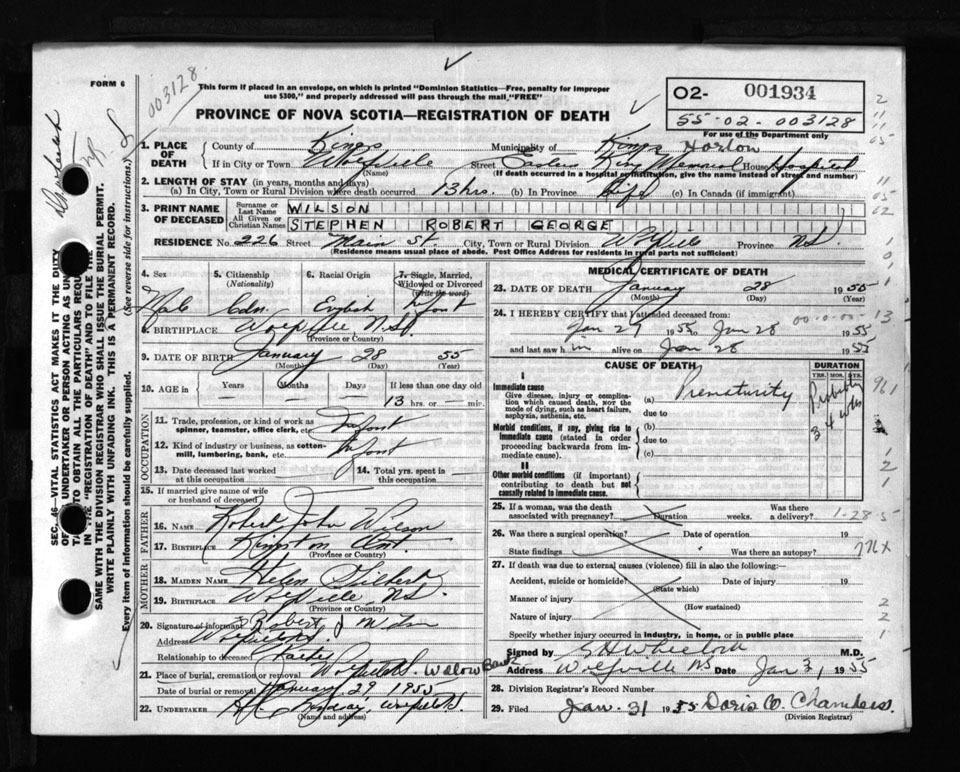 FORM 6
003128
This form if placed in an envelope, on which is printed "Dominion Statistics—Free, penalty for improper
use $300," and properly addressed will pass through the mail "FREE"
PROVINCE OF NOVA SCOTIA—REGISTRATION OF DEATH
O2- 001934
55-02-003128
For use of the Department only
SEC. 46—VITAL STATISTICS ACT MAKES IT THE DUTY
OF UNDERTAKER OR PERSON ACTING AS
TO OBTAIN ALL THE PARTICULARS
IN THE "REGISTRATION OF DEATH" AND TO FILE THE
SAME WITH THE DIVISION REGISTRAR WHO SHALL ISSUE THE BURIAL PERMIT.
WRITE PLAINLY WITH UNFADING INK. THIS IS A PERMANENT RECORD.
Every item of information should be carefully supplied. (See reverse side for instructions.)
1. PLACE OF DEATH County of Kings Municipality of Kings Horton
If in City or Town Wolfville Street Eastern King Memorial House Hospital
(Name) (If death occurred in a hospital or institution, give the name instead of street and number)
2. LENGTH OF STAY (in years, months and days)
(a) In City, Town or Rural Division where death occurred 13 hrs. (b) In Province Life (c) In Canada (if immigrant)
3. PRINT NAME OF DECEASED Surname or Last Name WILSON
All Given or Christian Names STEPHEN ROBERT GEORGE
RESIDENCE No. 226 Street Main St. City, Town or Rural Division Wolfville Province N.S.
(Residence means usual place of abode. Post Office Address for residents in rural parts not sufficient)
4. Sex 5. Citizenship (Nationality) 6. Racial Origin 7. Single, Married, Widowed or Divorced (Write the word)
Male Cdn. English Infant
8. BIRTHPLACE Wolfville N.S.
(Province or Country)
9. DATE OF BIRTH January 28 55
(Month) (Day) (Year)
10. AGE in Years Months Days If less than one day old
13 hrs. or — min.
OCCUPATION
11. Trade, profession, or kind of work as
spinner, teamster, office clerk, etc. Infant
12. Kind of industry or business, as cotton-
mill, lumbering, bank, etc. Infant
13. Date deceased last worked at this occupation — 14. Total yrs. spent in this occupation —
15. If married give name of wife
or husband of deceased
FATHER
16. NAME Robert John Wilson
17. BIRTHPLACE Kingston Ont.
(Province or Country)
MOTHER
18. MAIDEN NAME Helen Gilbert
19. BIRTHPLACE Wolfville N.S.
(Province or Country)
20. Signature of informant Robert J Wilson
Address Wolfville N.S.
Relationship to deceased Father
21. Place of burial, cremation or removal Wolfville N.S. Willow Bank
Date of burial or removal January 29 1955
22. UNDERTAKER Lindsay, Wolfville N.S.
(Name and address)
MEDICAL CERTIFICATE OF DEATH
23. DATE OF DEATH January 28 1955
(Month) (Day) (Year)
24. I HEREBY CERTIFY that I attended deceased from:
Jan 27 1955 to Jan 28 1955
and last saw h im alive on Jan 28 1955
CAUSE OF DEATH DURATION
YRS. MOS. DYS.
I
Immediate cause
Give disease, injury or complication which caused death, not the mode of dying, such as heart failure, asphyxia, asthenia, etc. (a) Prematurity
due to
Morbid conditions, if any, giving rise to immediate cause (stated in order proceeding backwards from immediate cause). (b)
due to
(c)
II
Other morbid conditions (if important) contributing to death but not causally related to immediate cause.
25. If a woman, was the death associated with pregnancy? Duration weeks. Was there a delivery? 1-28-5
26. Was there a surgical operation? Date of operation 19
State findings Was there an autopsy?
27. If death was due to external causes (violence) fill in also the following:—
Accident, suicide or homicide? Date of injury 19
(State which)
Manner of injury
(How sustained)
Nature of injury
Specify whether injury occurred in industry, in home, or in public place
Signed by M.D.
Address Wolfville NS Date Jan 31, 1955
28. Division Registrar's Record Number
29. Filed Jan. 31 1955 Doris O. Chambers.
(Division Registrar)